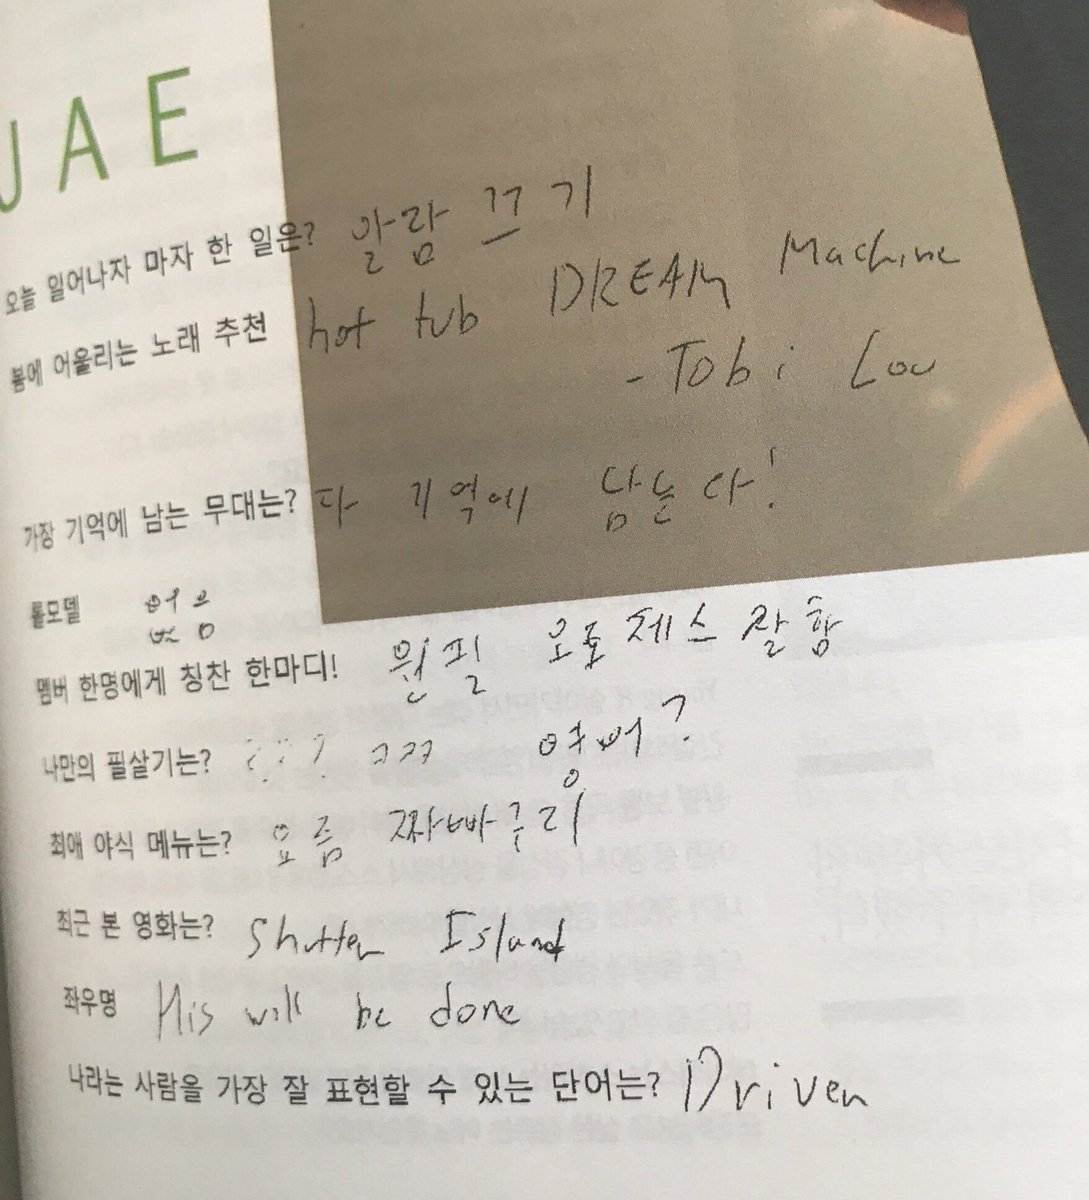 JAE
오늘 일어나자 마자 한 일은? 알람 끄기
봄에 어울리는 노래 추천 hot tub DREAM Machine
- Tobi Lou
가장 기억에 남는 무대는? 다 기억에 남는다!
롤모델 없음
멤버 한명에게 칭찬 한마디! 원필 오토체스 잘함
나만의 필살기는? ??? ㅋㅋㅋ 영어?
최애 야식 메뉴는? 요즘 짜빠구리
최근 본 영화는? Shutter Island
좌우명 His will be done
나라는 사람을 가장 잘 표현할 수 있는 단어는? Driven